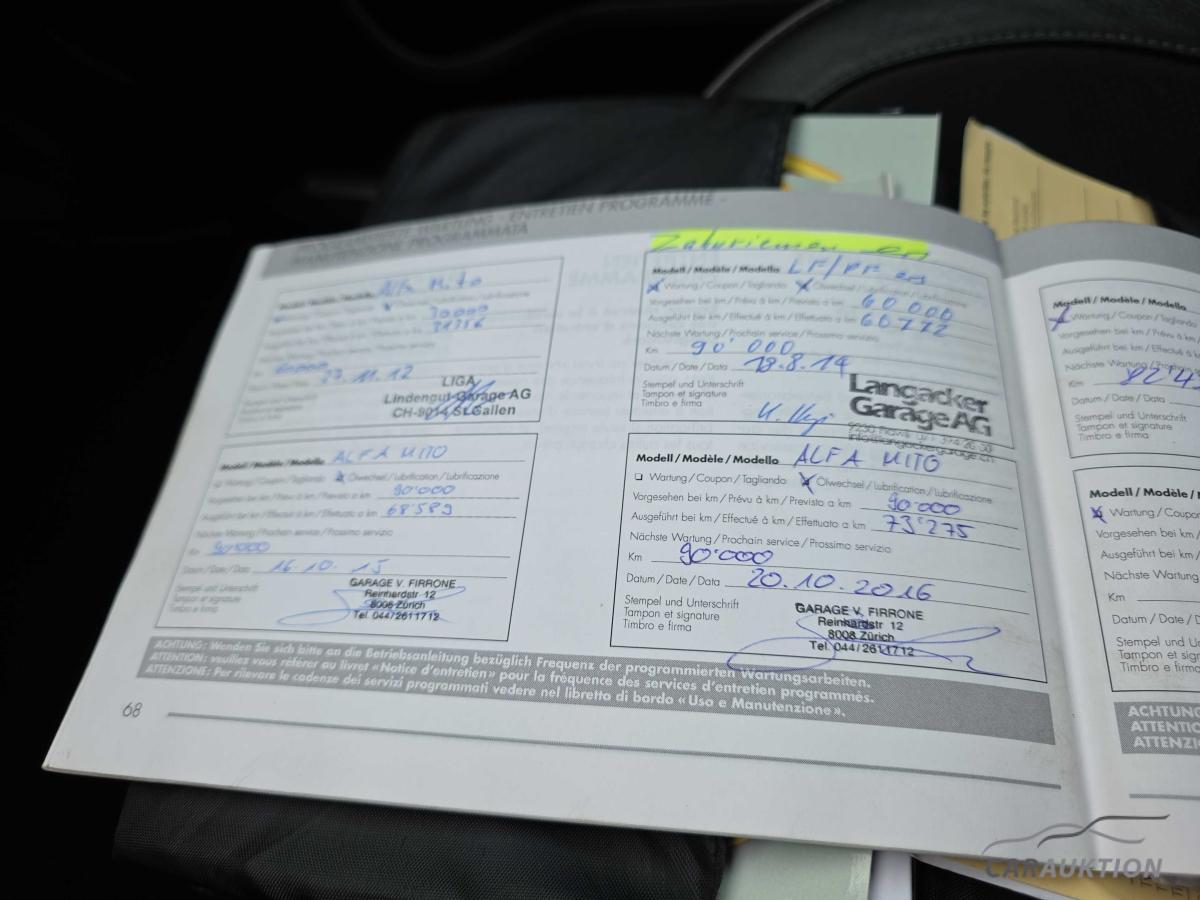 PROGRAMMIERTE WARTUNG - ENTRETIEN PROGRAMMÉ -
MANUTENZIONE PROGRAMMATA
Modell / Modèle / Modello Alfa Mito
30'000
60000
27.11.12
LIGA
Lindengut-Garage AG
CH-9014 St.Gallen
Modell / Modèle / Modello ALFA MITO
Wartung / Coupon / Tagliando Ölwechsel / Lubrification / Lubrificazione
Vorgesehen bei km / Prévu à km / Previsto a km 90'000
Ausgeführt bei km / Effectué à km / Effettuato a km 68589
Nächste Wartung / Prochain service / Prossimo servizio
Km 90'000
Datum / Date / Data 16.10.15
Stempel und Unterschrift
Tampon et signature
Timbro e firma
GARAGE V. FIRRONE
Reinhardstr 12
8008 Zürich
Tel. 044/261 17 12
Zahnriemen
Modell / Modèle / Modello
Wartung / Coupon / Tagliando Ölwechsel / Lubrification / Lubrificazione
Vorgesehen bei km / Prévu à km / Previsto a km 60 000
Ausgeführt bei km / Effectué à km / Effettuato a km 60772
Nächste Wartung / Prochain service / Prossimo servizio
Km 90'000
Datum / Date / Data .8.14
Stempel und Unterschrift
Tampon et signature
Timbro e firma
Langacker
Garage AG
Modell / Modèle / Modello ALFA MITO
Wartung / Coupon / Tagliando Ölwechsel / Lubrification / Lubrificazione
Vorgesehen bei km / Prévu à km / Previsto a km 90'000
Ausgeführt bei km / Effectué à km / Effettuato a km 73'275
Nächste Wartung / Prochain service / Prossimo servizio
Km 90'000
Datum / Date / Data 20.10.2016
Stempel und Unterschrift
Tampon et signature
Timbro e firma
GARAGE V. FIRRONE
Reinhardstr 12
8008 Zürich
Tel. 044/261 17 12
ACHTUNG: Wenden Sie sich bitte an die Betriebsanleitung bezüglich Frequenz der programmierten Wartungsarbeiten.
ATTENTION: veuillez vous référer au livret «Notice d'entretien» pour la fréquence des services d'entretien programmés.
ATTENZIONE: Per rilevare le cadenze dei servizi programmati vedere nel libretto di bordo «Uso e Manutenzione».
68
Modell / Modèle / Modello
Wartung / Coupon / Tagliando
Vorgesehen bei km / Prévu à k
Ausgeführt bei km / Effectué
Nächste Wartung / Prochain
Km
Datum / Date / Data
Stempel und Unterschrift
Tampon et signature
Timbro e firma
Modell / Modèle / M
Wartung / Coupo
Vorgesehen bei km /
Ausgeführt bei km /
Nächste Wartung
Km
Datum / Date / D
Stempel und Unters
Tampon et signatur
Timbro e firma
ACHTUNG
ATTENTIO
ATTENZI
CARAUKTION